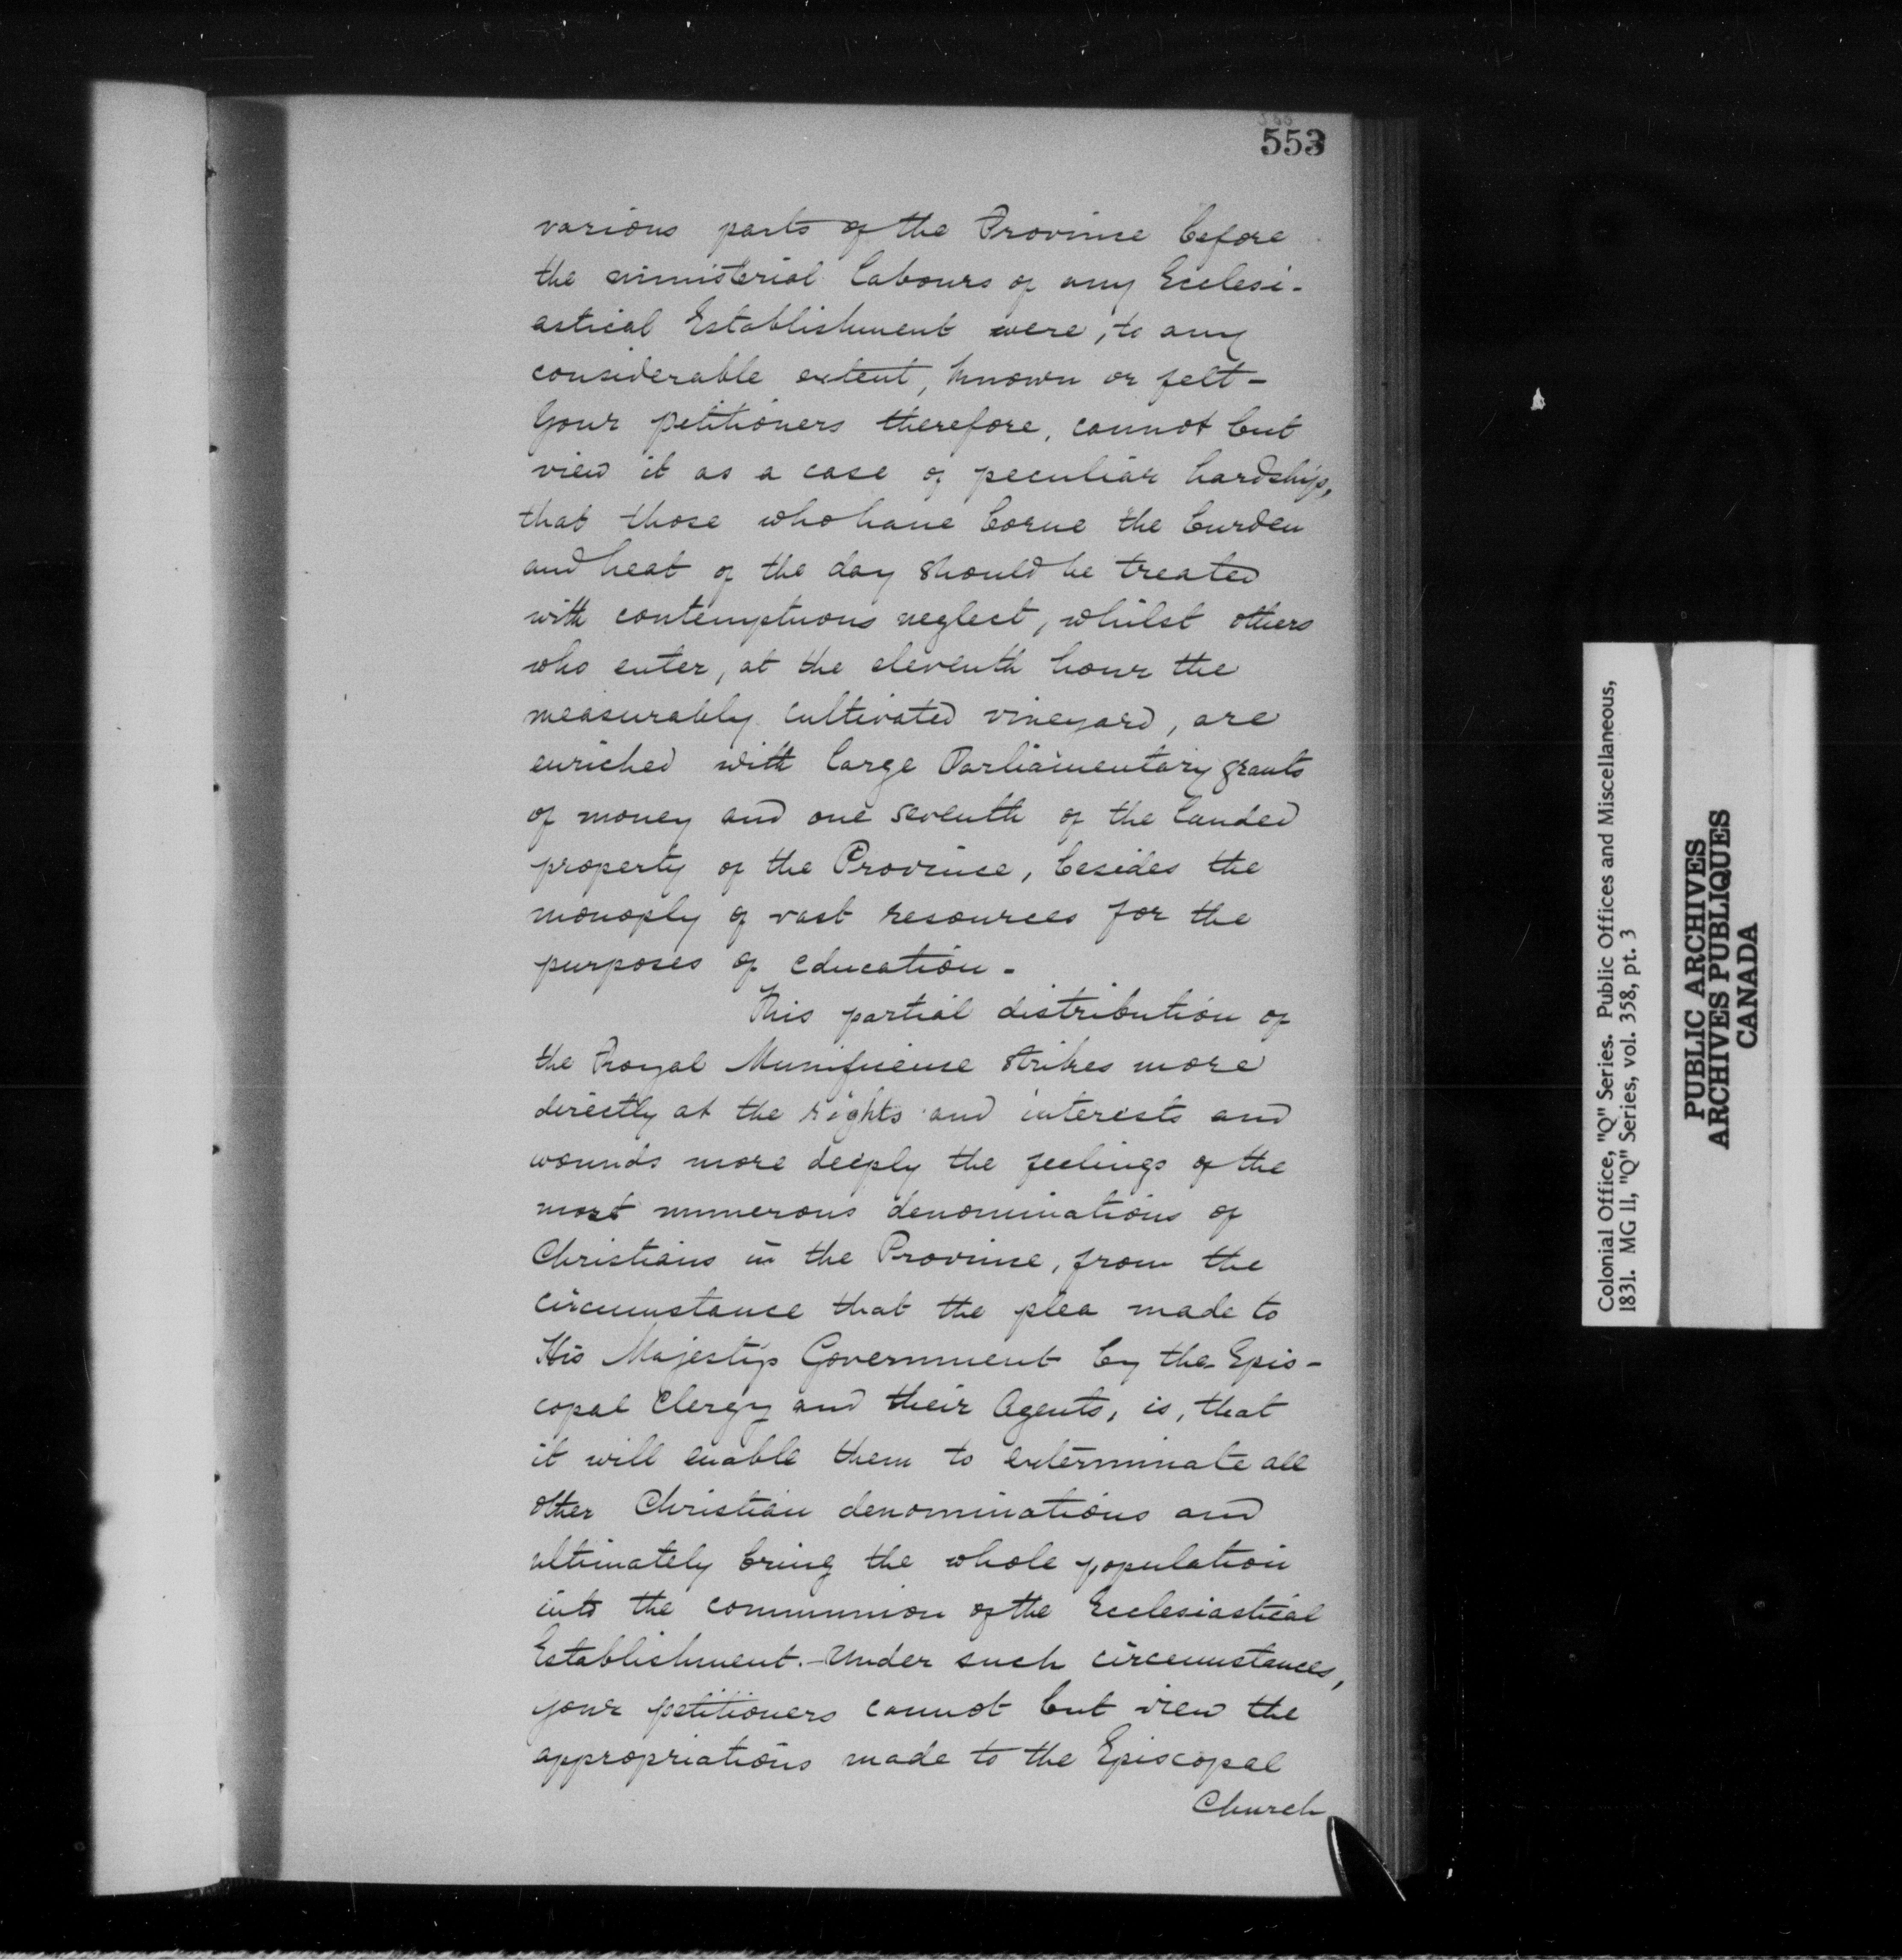 553
various parts of the Province before
the ministerial labours of any Ecclesi-
astical Establishment were, to any
considerable extent, known or felt -
Your petitioners therefore, cannot but
view it as a case of peculiar hardship,
that those who have borne the burden
and heat of the day should be treated
with contemptuous neglect, whilst others
who enter, at the eleventh hour the
measurably cultivated vineyard, are
enriched with large Parliamentary grants
of money and one seventh of the landed
property of the Province, besides the
monoply of vast resources for the
purposes of education -
This partial distribution of
the Royal Munificence strikes more
directly at the rights and interests and
wounds more deeply the feelings of the
most numerous denominations of
Christians in the Province, from the
circumstance that the plea made to
His Majesty's Government by the Epis-
copal Clergy and their Agents, is, that
it will enable them to exterminate all
other Christian denominations and
ultimately bring the whole population
into the communion of the Ecclesiastical
Establishment. - Under such circumstances,
your petitioners cannot but view the
appropriations made to the Episcopal
Church
Colonial Office, "Q" Series. Public Offices and Miscellaneous,
1831. MG 11, "Q" Series, vol. 358, pt. 3
PUBLIC ARCHIVES
ARCHIVES PUBLIQUES
CANADA